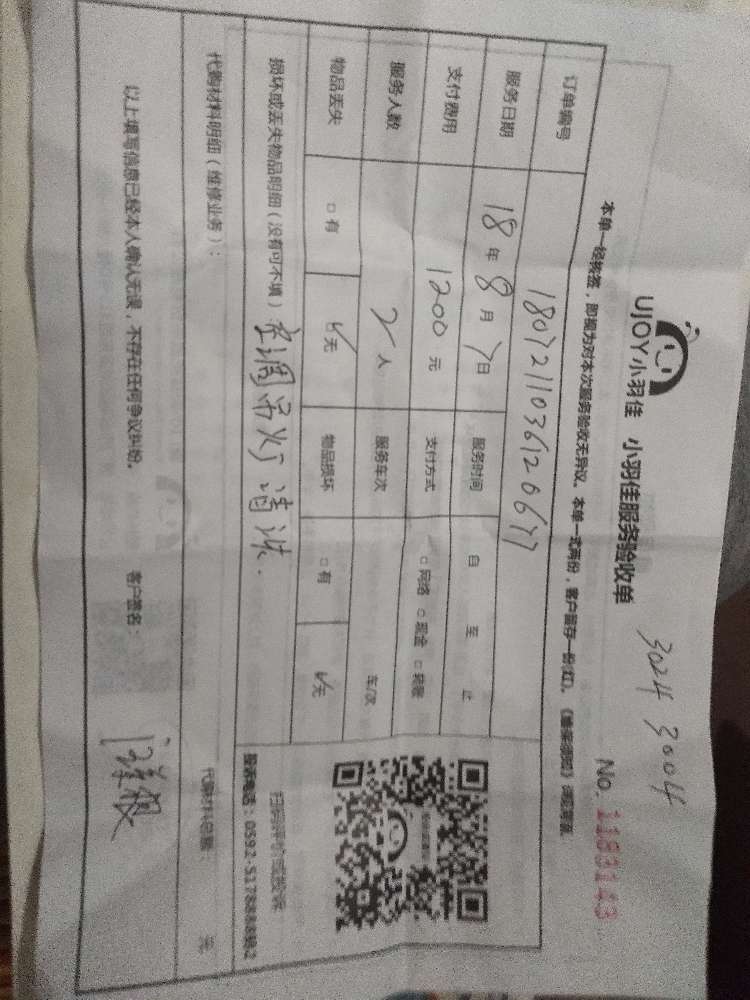 3024 3004
UJOY小羽佳 小羽佳服务验收单
No. 1183143
本单一经核签，即视为对本次服务验收无异议。本单一式两份，客户留存一份(红)。
订单编号
服务日期 18年8月7日 服务时间 自 至 止
支付费用 1200元 支付方式 □网络 □现金 □转账
服务人数 2人 服务车次 车/次
物品丢失 □有 ☑无 物品损坏 □有 ☑无
损坏或丢失物品明细（没有可不填）：空调 吊灯清洗.
扫码评价或投诉
投诉电话：0592-5178888转2
代购材料明细（维修业务）： 代购材料总额： 元
以上填写信息已经本人确认无误，不存在任何争议纠纷。 客户签名：